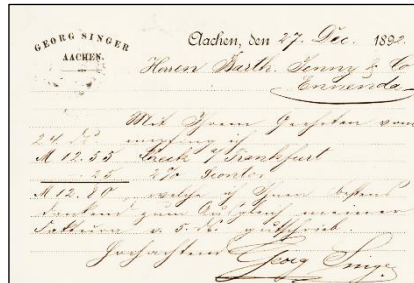 GEORG SINGER
AACHEN.
Aachen, den 27. Dec. 1892
Herren Barth. Jenny & Co
Ennenda
Mit Ihrem Geehrten vom
24. ds empfing ich
M 12.55 Check s/ Frankfurt
" 25 2% Sconto
M 12.80, welche ich Ihnen bestens
dankend zum Ausgleich meiner
Factura v. 5. ds gutschrieb.
Hochachtend
Georg Singer